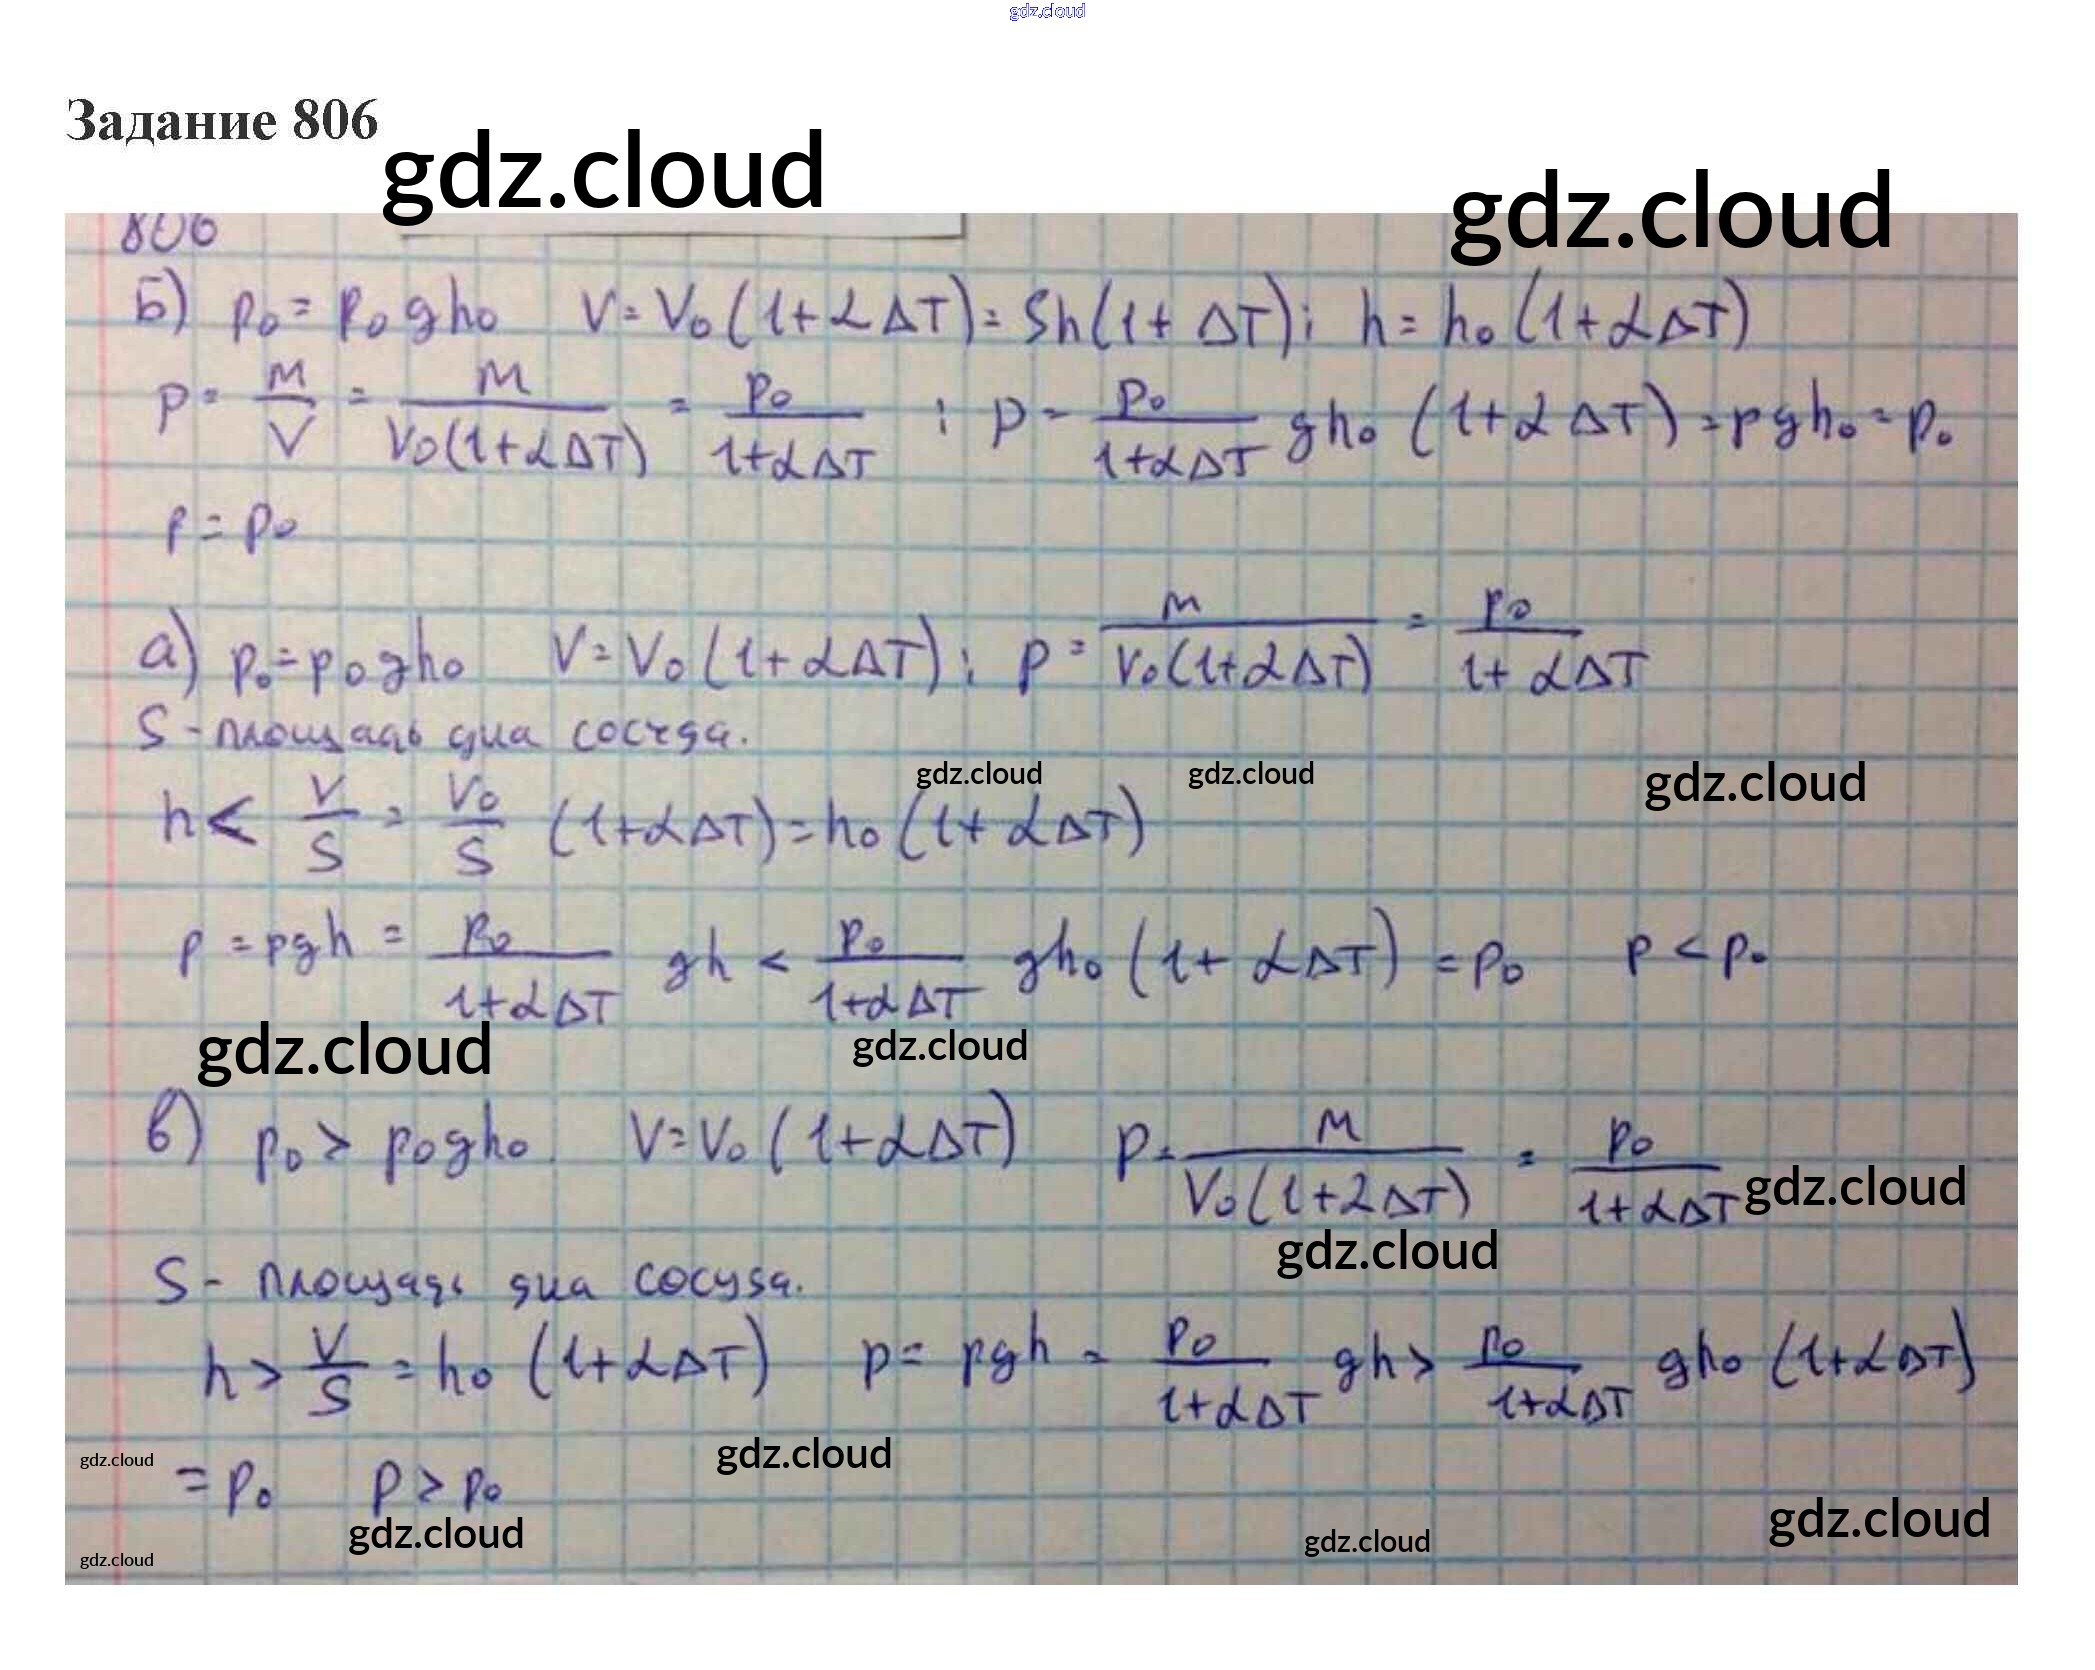 gdz.cloud
Задание 806
gdz.cloud
gdz.cloud
806
Б) p₀ = p₀gh₀ V = V₀(1+αΔT) = Sh(1+ΔT); h = h₀(1+αΔT)
p = m/V = m/V₀(1+αΔT) = p₀/1+αΔT ; p = p₀/1+αΔT gh₀(1+αΔT) = pgh₀ = p₀
p = p₀
а) p₀ = p₀gh₀ V = V₀(1+αΔT); p = m/V₀(1+αΔT) = p₀/1+αΔT
S - площадь дна сосуда.
gdz.cloud gdz.cloud gdz.cloud
h < V/S = V₀/S (1+αΔT) = h₀(1+αΔT)
p = pgh = p₀/1+αΔT gh < p₀/1+αΔT gh₀(1+αΔT) = p₀ p < p₀
gdz.cloud gdz.cloud
в) p₀ > p₀gh₀. V = V₀(1+αΔT) p = m/V₀(1+2ΔT) = p₀/1+αΔT
gdz.cloud
gdz.cloud
S - площадь дна сосуда.
h > V/S = h₀(1+αΔT) p = pgh = p₀/1+αΔT gh > p₀/1+αΔT gh₀(1+αΔT)
gdz.cloud gdz.cloud
= p₀ p > p₀
gdz.cloud gdz.cloud gdz.cloud
gdz.cloud